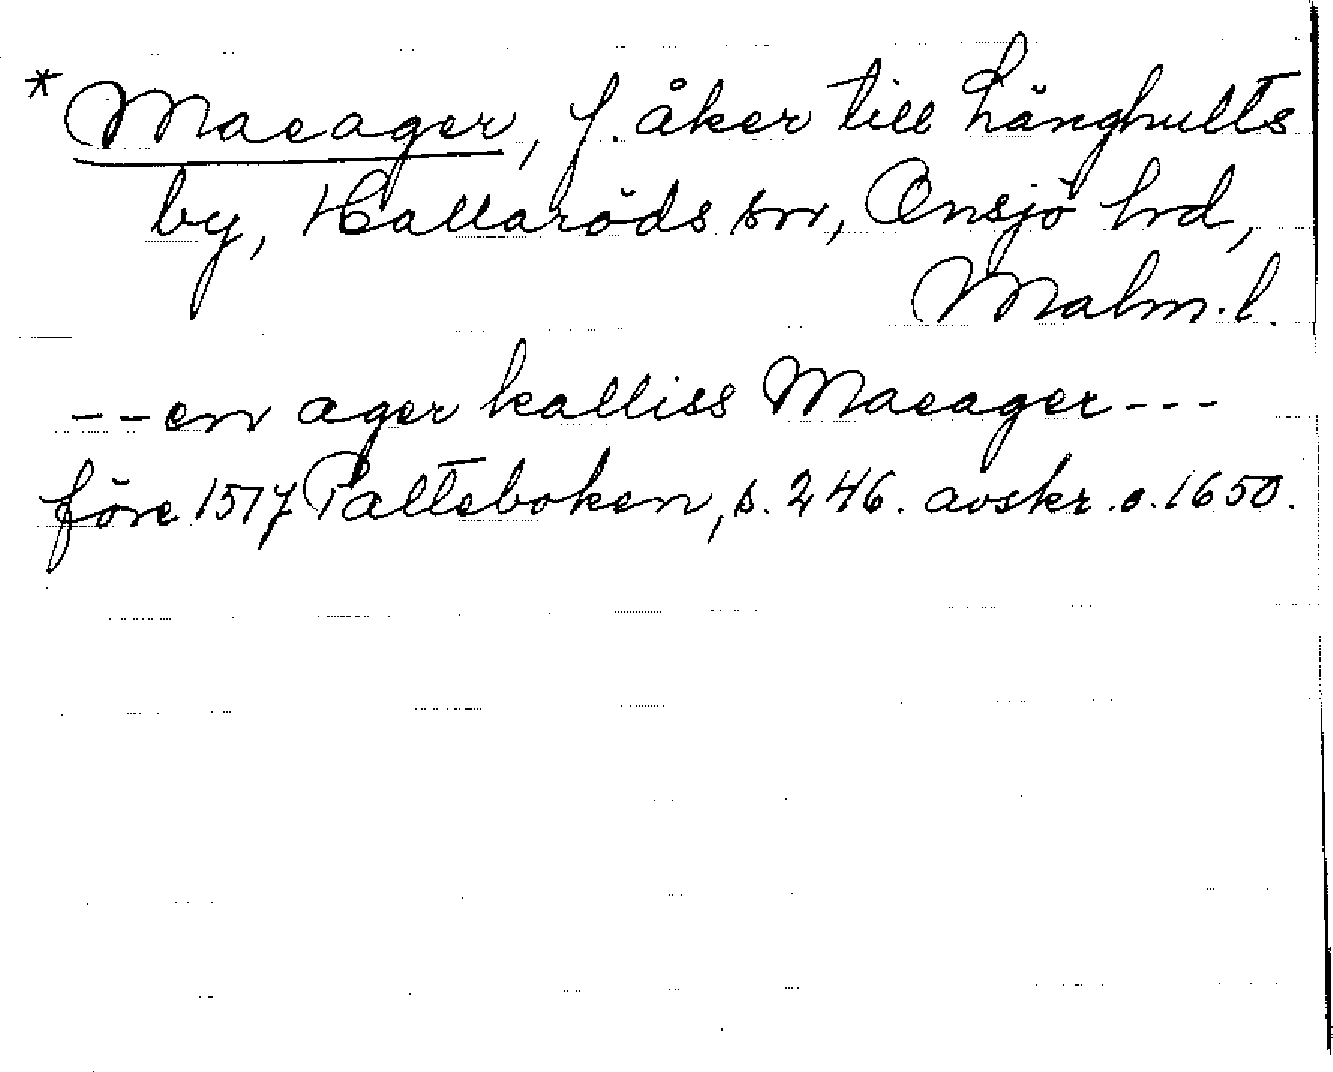 * Maeager, f. åker till Länghults
by, Hallaröds sn, Onsjö hrd,
Malm. l.
-- en ager kalliss Maeager ---
före 1517 Palteboken, s. 246. avskr. o. 1650.